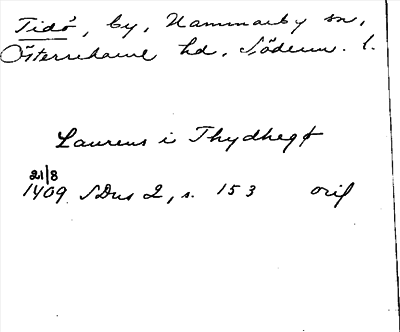 Tidö, by, Hammarby sn,
Österrekarne hd, Söderm. l.
Laurens i Thydhegø
21/8
1409 SDns 2, s. 153 orig